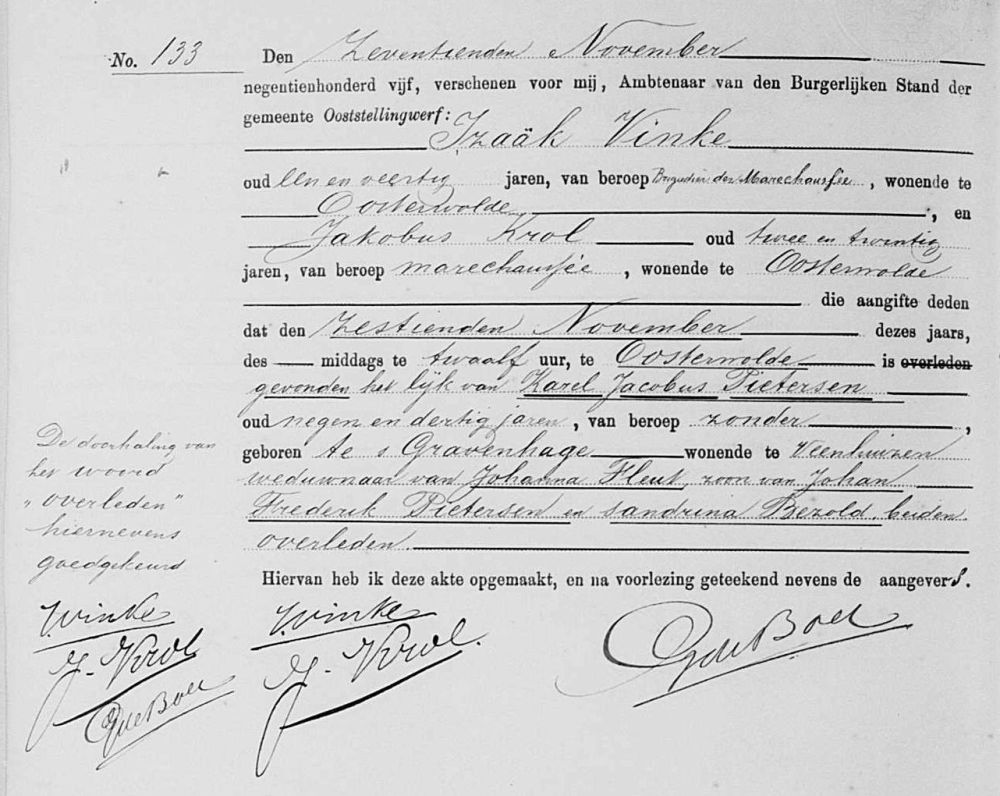 No. 133 Den Zeventienden November
negentienhonderd vijf, verschenen voor mij, Ambtenaar van den Burgerlijken Stand der
gemeente Ooststellingwerf:
Izaäk Vinke
oud een en veertig jaren, van beroep Brigadier der Marechaussée, wonende te
Oosterwolde, en
Jakobus Krol oud twee en twintig
jaren, van beroep marechaussée, wonende te Oosterwolde
die aangifte deden
dat den Zestienden November dezes jaars,
des middags te twaalf uur, te Oosterwolde is overleden
gevonden het lijk van Karel Jacobus Pietersen
oud negen en dertig jaren, van beroep zonder,
geboren te s Gravenhage wonende te Veenhuizen
weduwnaar van Johanna Fleut, zoon van Johan
Frederik Pietersen en Sandrina Bezold, beiden
overleden.
Hiervan heb ik deze akte opgemaakt, en na voorlezing geteekend nevens de aangevers.
De doorhaling van
het woord
"overleden"
hiernevens
goedgekeurd
I. Vinke
J. Krol
G de Boer
I. Vinke
J. Krol.
G de Boer